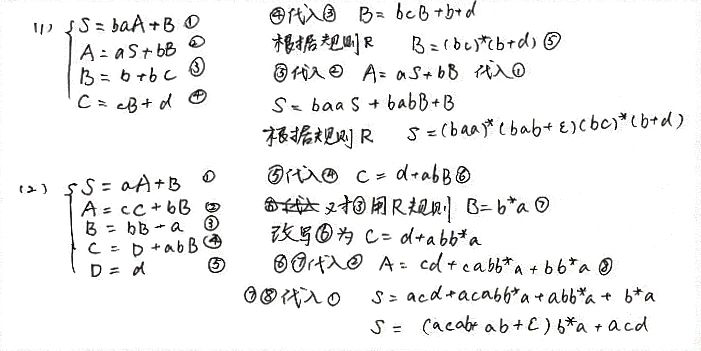 (1) { S = baA + B ①
A = aS + bB ②
B = b + bC ③
C = cB + d ④
④代入③ B = bcB + b + d
根据规则R B = (bc)*(b+d) ⑤
③代入② A = aS + bB 代入①
S = baaS + babB + B
根据规则R S = (baa)*(bab+ε)(bc)*(b+d)
(2) { S = aA + B ①
A = cC + bB ②
B = bB + a ③
C = D + abB ④
D = d ⑤
⑤代入④ C = d + abB ⑥
对③用R规则 B = b*a ⑦
改写⑥为 C = d + abb*a
⑥⑦代入② A = cd + cabb*a + bb*a ⑧
⑦⑧代入① S = acd + acabb*a + abb*a + b*a
S = (acab+ab+ε)b*a + acd